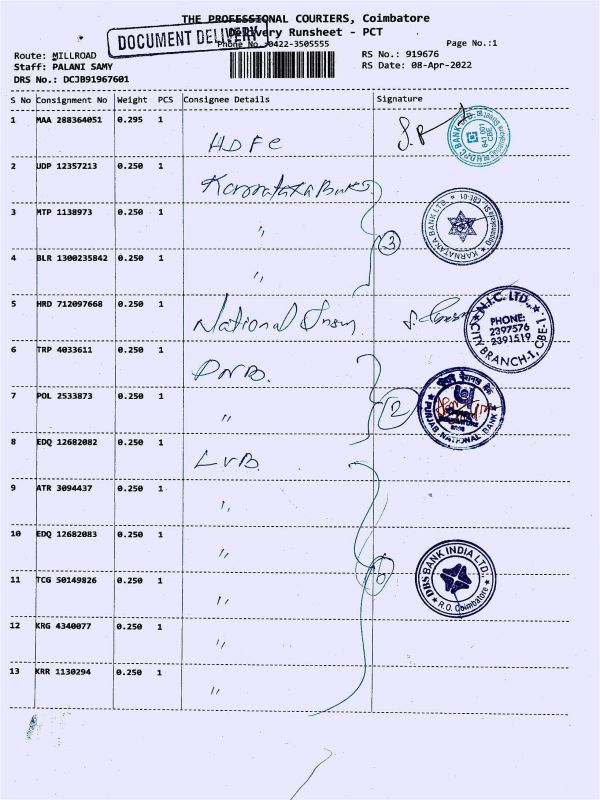 THE PROFESSIONAL COURIERS, Coimbatore
Delivery Runsheet - PCT
DOCUMENT DELIVERY
Phone No :0422-3505555
Page No.:1
Route: MILLROAD
RS No.: 919676
Staff: PALANI SAMY
RS Date: 08-Apr-2022
DRS No.: DCJB91967601
S No Consignment No Weight PCS Consignee Details Signature
1 MAA 288364051 0.295 1
HDFC
HDFC BANK LTD
641 001
CBE
2 UDP 12357213 0.250 1
Karnataka Bank
3 MTP 1138973 0.250 1
"
KARNATAKA BANK LTD. CBE-01
3
4 BLR 1300235842 0.250 1
"
5 HRD 712097668 0.250 1
National Insu
N.I.C. LTD.,
PHONE:
2397576
2391519
CITY BRANCH-1, CBE-1
6 TRP 4033611 0.250 1
PNB.
7 POL 2533873 0.250 1
"
2
PUNJAB NATIONAL BANK
8 EDQ 12682082 0.250 1
LVB.
9 ATR 3094437 0.250 1
"
10 EDQ 12682083 0.250 1
"
6
DBS BANK INDIA LTD.,
R.O. Coimbatore
11 TCG 50149826 0.250 1
"
12 KRG 4340077 0.250 1
"
13 KRR 1130294 0.250 1
"